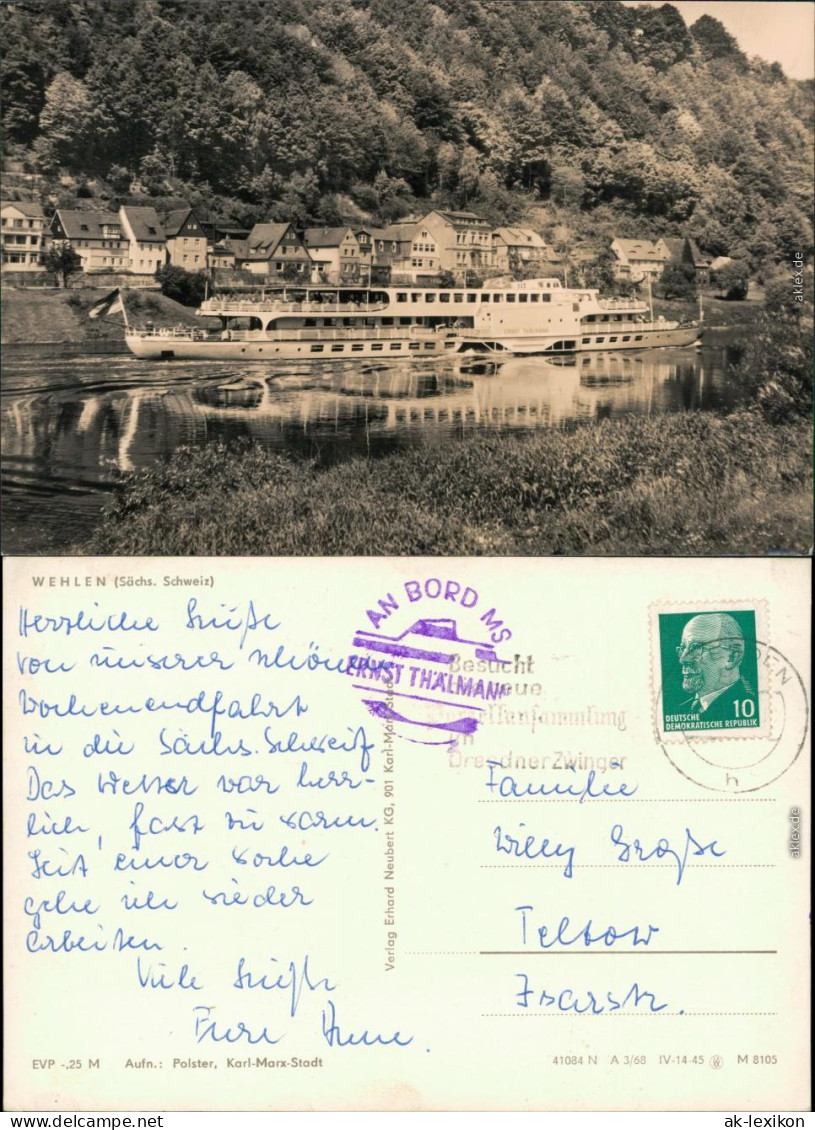 ERNST THÄLMANN
WEHLEN (Sächs. Schweiz)
Herzliche Grüße
von unserer schönen
Wochenendfahrt
in die Sächs. Schweiz
Das Wetter war herr-
lich, fast zu warm.
Seit einer Woche
gehe ich wieder
arbeiten.
Viele Grüße
Eure
AN BORD MS
ERNST THÄLMANN
Besucht
neue
sammlung
im
Dresdner Zwinger
10
DEUTSCHE
DEMOKRATISCHE REPUBLIK
h
Familie
Willy Große
Teltow
Isarstr.
Verlag Erhard Neubert KG, 901 Karl-Marx-Stadt
EVP -,25 M Aufn.: Polster, Karl-Marx-Stadt
41084 N A 3/68 IV-14-45 M 8105
akiex.de
akiex.de
DELCAMPE.NET
ak-lexikon